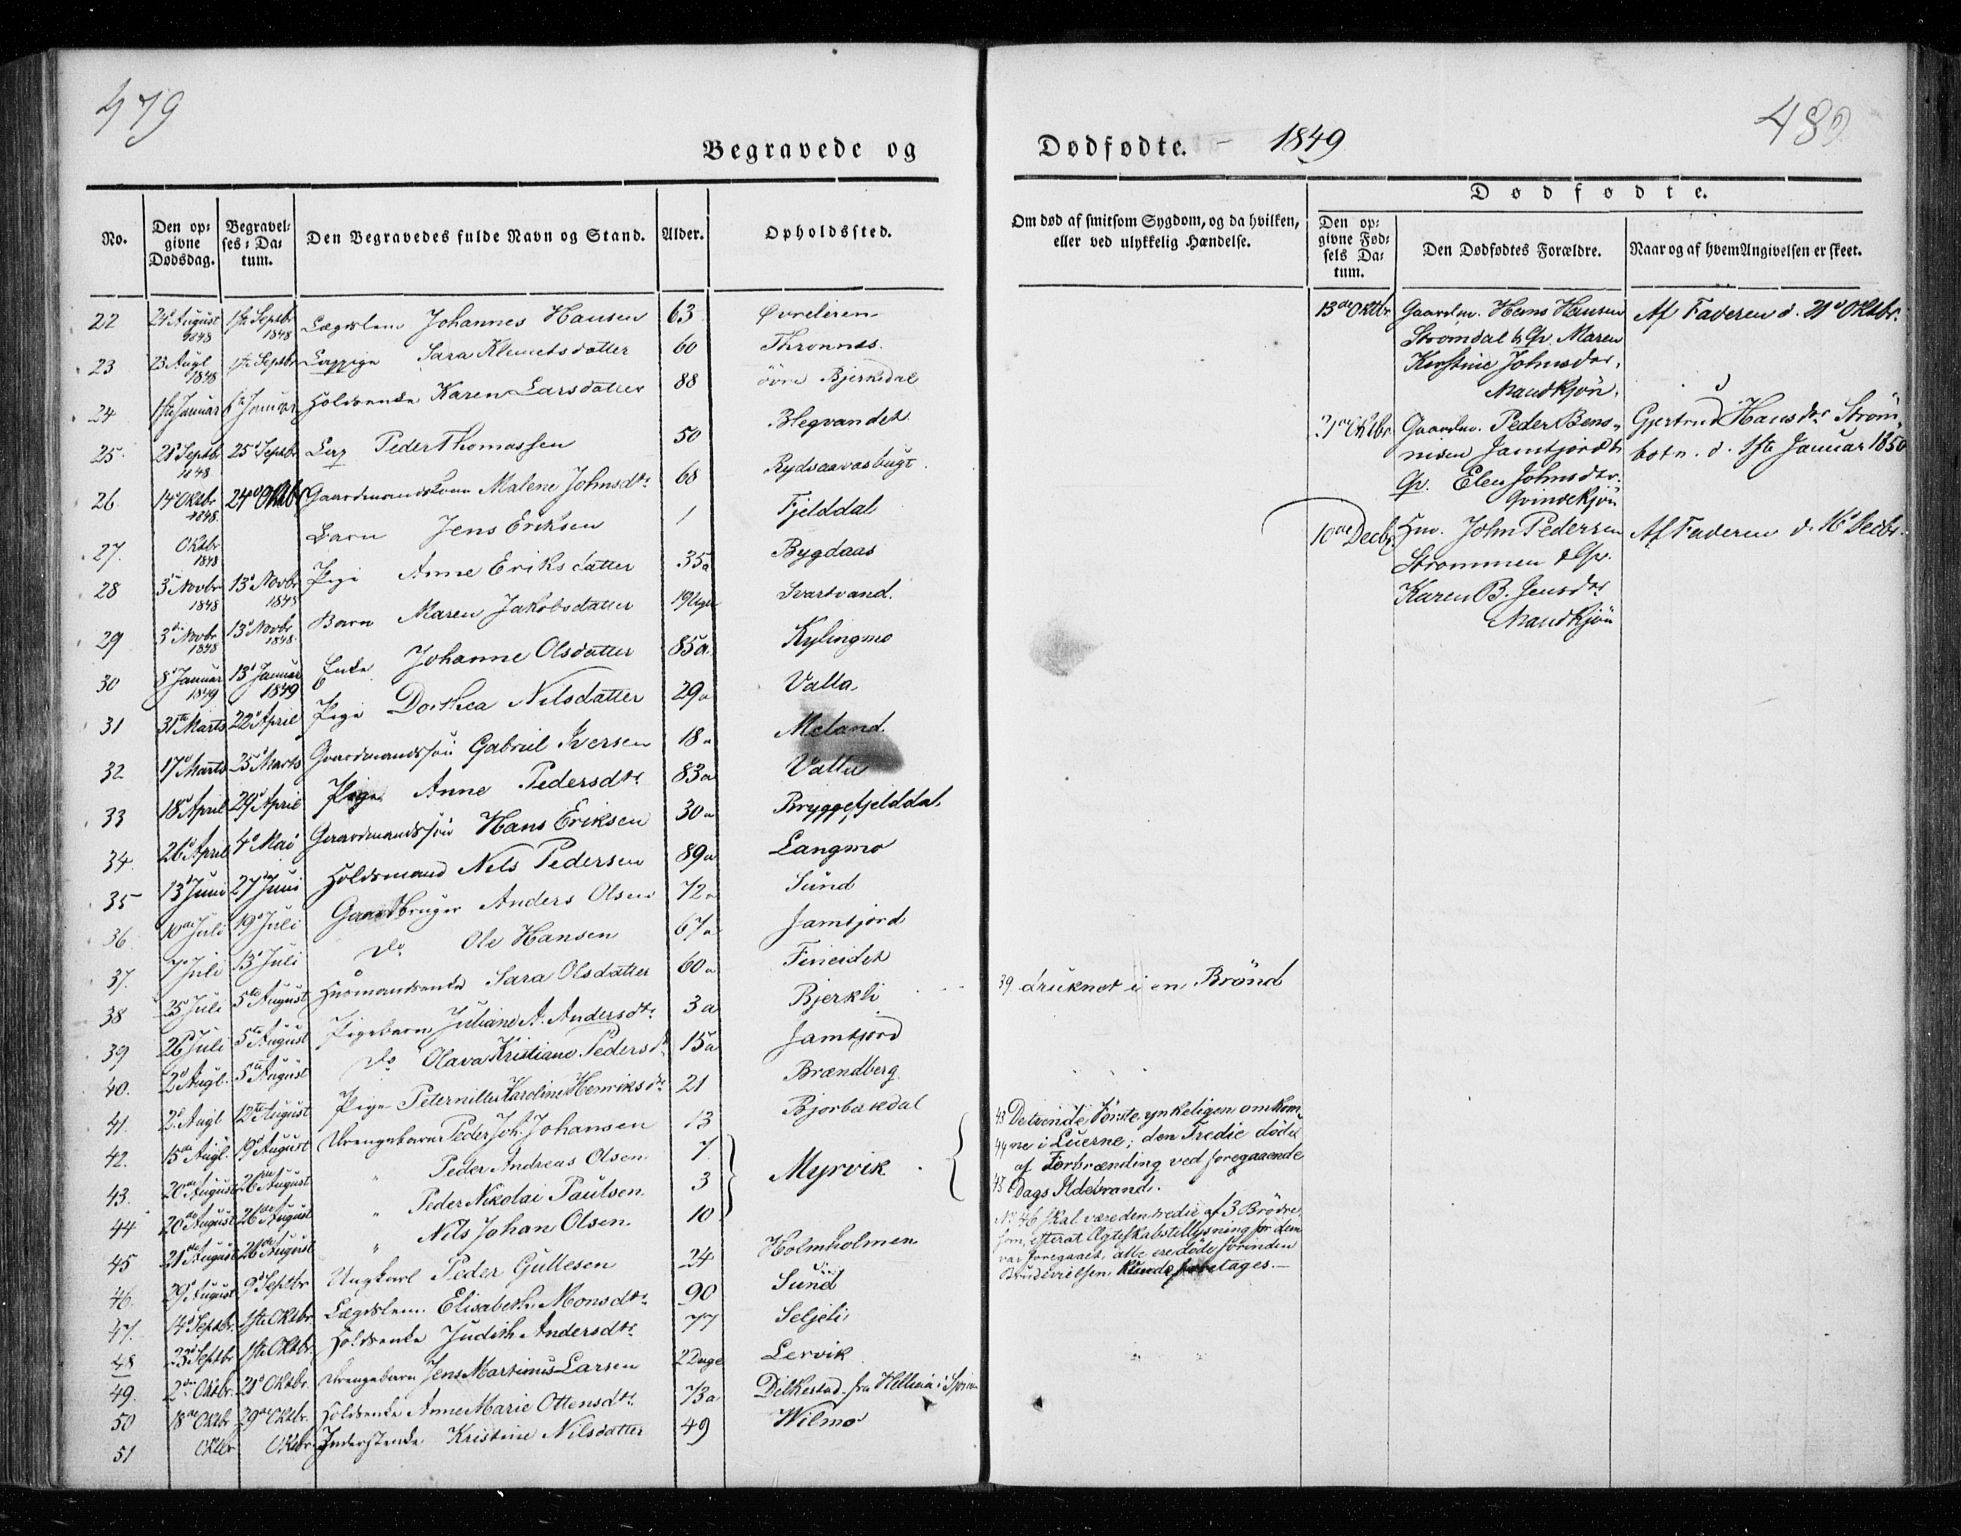 479
Begravede og
No.
Den op=
givne
Dødsdag.
Begravel=
ses=Da=
tum.
Den Begravedes fulde Navn og Stand.
Alder.
Opholdssted.
22 21 August 1848 1ste Septbr 1848 Lægdslem Johannes Hansen 63 Øvrelieren
23 23 Augl 1848 1ste Septbr Sara Klemetsdatter 60 Thronnes
24 1ste Januar Januar Holdsenke Karen Larsdatter 88 övre Bjerkedal
25 21 Septbr 1848 25 Septbr Lap Peder Thomassen 50 Blegvandet
26 14 Oktbr 1848 24 Oktbr Gaardmandskone Malene Johnsdtr 68 Rydsaavasbugt
27. Oktbr 1848 Barn Jens Eriksen 1 Fjelddal
28 3 Novbr 1848 13 Novbr 1848 Pige Anne Eriksdatter 35a Bygdaas
29 3 Novbr 1848 13 Novbr 1848 Barn Maren Jakobsdatter 19 Uger Svartvand.
30 8 Januar 1849 13 Januar 1849 Enke Johanne Olsdatter 85a Kylingmo
31 31te Marts 22 April Pige Dorthea Nilsdatter 29a Valla
32 17 Marts 25 Marts Gaardmandssön Gabriel Iversen 18a Meland
33 18 April 29 April Pige Anne Pedersdtr 83a Valla
34. 26 April 4 Mai Gaardmandssön Hans Eriksen 30a Bryggefjelddal
35 13 Juni 27 Juni Holdsmand Nils Pedersen 89a Langmo
36. 10de Juli 19 Juli Gaardbruger Anders Olsen 72a Sund
37. 7 Juli 13 Juli Do Ole Hansen 67a Jamtjord
38 25 Juli 5te August Husmandsenke Sara Olsdatter 60a Fineidet
39 26 Juli 5te August Pigebarn Juliane A. Andersdtr 3a Bjerkli
40. 2 Augl. 5te August Do Olava Kristiane Pedersdtr 15a Jamtjord
41. 2 Augl 12te August Pige Peternille Karoline Henriksdtr 21 Brændberg
42. 15de Augl. 19 August Drengebarn Peder Joh. Johansen 13 Bjorbakdal
43. 20de August 26de August " Peder Andreas Olsen 7 Myrvik
44 20de August 26de August " Peder Nikolai Paulsen 3
45 21de August 26de August " Nils Johan Olsen 10
46. 29 August 9 Septbr Ungkarl Peder Gullesen 24 Holmholmen
47. 14 Septbr. 1ste Oktbr. Lægdslem Elisabeth Monsdtr 90 Sund
48 23 Septbr 1ste Oktbr. Holdsenke Judith Andersdtr 77 Seljeli
49. 2den Oktbr. 21 Oktbr. Drengebarn Jens Martinus Larsen 2 Dage Lervik
50 18de Oktbr 29de Oktbr. Holdsenke Anne Marie Ottensdtr 73a Dilkestad fra
51 Oktbr Oktbr Inderstenke Kristine Nilsdatter 49 Wilmo
480
Dødfødte. 1849
Om død af smitsom Sygdom, og da hvilken,
eller ved ulykkelig Hændelse.
Dødfødte.
Den op=
givne Fød=
sels Da=
tum.
Den Dødfødtes Forældre.
Naar og af hvem Angivelsen er skeet.
13de Oktbr Gaardm. Hans Hansen Af Faderen d. 21 Oktbr.
Strømdal & Qv. Maren
Kirstine Johnsdar.
Mandkjön.
31te Oktbr. Gaardm. Peder Bens- Gjertrud Hansdtr Ström
nisen Jamtjord & botn. d. 1ste Januar 1850
Qv. Elen Johnsdtr.
Qvindekjön
10de Decbr. Hm. John Pedersen Af Faderen d. 16 Decbr.
Strommen & Qv.
Karen B. Jensdtr
Mandkjön
39 druknet i en Brönd
43 De tvende Förste ynkeligen omkom=
44 ne i Luerne; den Tredie döde
af Forbrænding ved foregaaende
45 Dags Ildebrand.
No 46 skal være den tredie af 3 Brödre,
som, efterat Ægteskabstillysning for dem
var foregaaet, alle ere döde förinden
Brudevielsen kunde foretages.